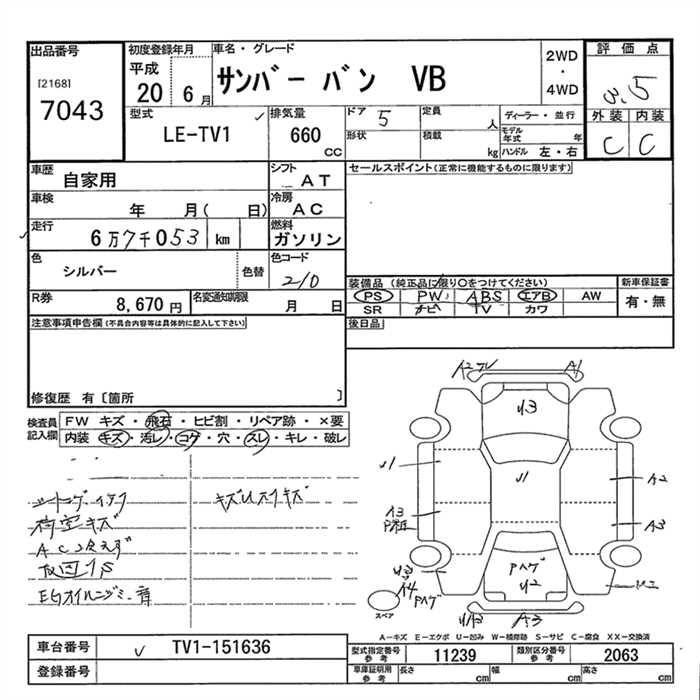 出品番号
[2168]
7043
初度登録年月
平成
20 6月
車名・グレード
サンバー バン VB
2WD
・
4WD
評価点
3.5
外装 内装
C C
型式
LE-TV1
排気量
660
CC
ドア 5
形状
定員
人
積載
kg
ディーラー・並行
モデル年式 年
ハンドル 左・右
車歴
自家用
シフト
AT
車検
年 月( 日)
冷房
AC
走行
6万7千053 km
燃料
ガソリン
色
シルバー
色替
色コード
210
R券
8,670円
名変通知期限
月 日
セールスポイント(正常に機能するものに限ります)
装備品 (純正品に限り○をつけてください)
PS PW ABS エアB AW
SR ナビ TV カワ
新車保証書
有・無
後日品
注意事項申告欄(不具合内容等は具体的に記入して下さい)
修復歴 有〔箇所 〕
検査員記入欄
FW キズ・飛石・ヒビ割・リペア跡・×要
内装 キズ・汚レ・コゲ・穴・スレ・キレ・破レ
荷室キズ
AC冷えず
EGオイルニジミ
A2
A1
U3
U1
U1
A2
A3
A3
Pハゲ
U2
A4
Pハゲ
A3
スペア
A-キズ E-エクボ U-凹み W-補修跡 S-サビ C-腐食 XX-交換済
車台番号
TV1-151636
登録番号
型式指定番号
参考
11239
類別区分番号
参考
2063
車庫証明用
参考
長さ cm 幅 cm 高さ cm